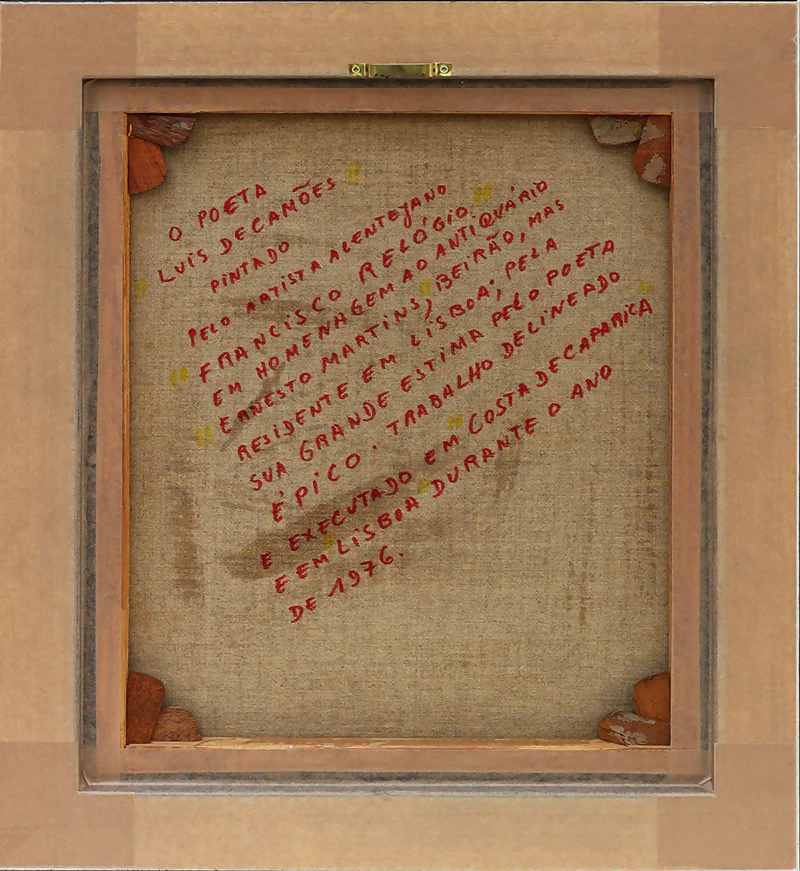 O POETA
"LUIS DE CAMÕES"
PINTADO
PELO ARTISTA ALENTEJANO
"FRANCISCO RELÓGIO"
EM HOMENAGEM AO ANTIQUÁRIO
"ERNESTO MARTINS", BEIRÃO, MAS
RESIDENTE EM LISBOA; PELA
SUA GRANDE ESTIMA PELO POETA
ÉPICO. TRABALHO DELINEADO
E EXECUTADO EM "COSTA DE CAPARICA"
E EM "LISBOA" DURANTE O ANO
DE 1976.